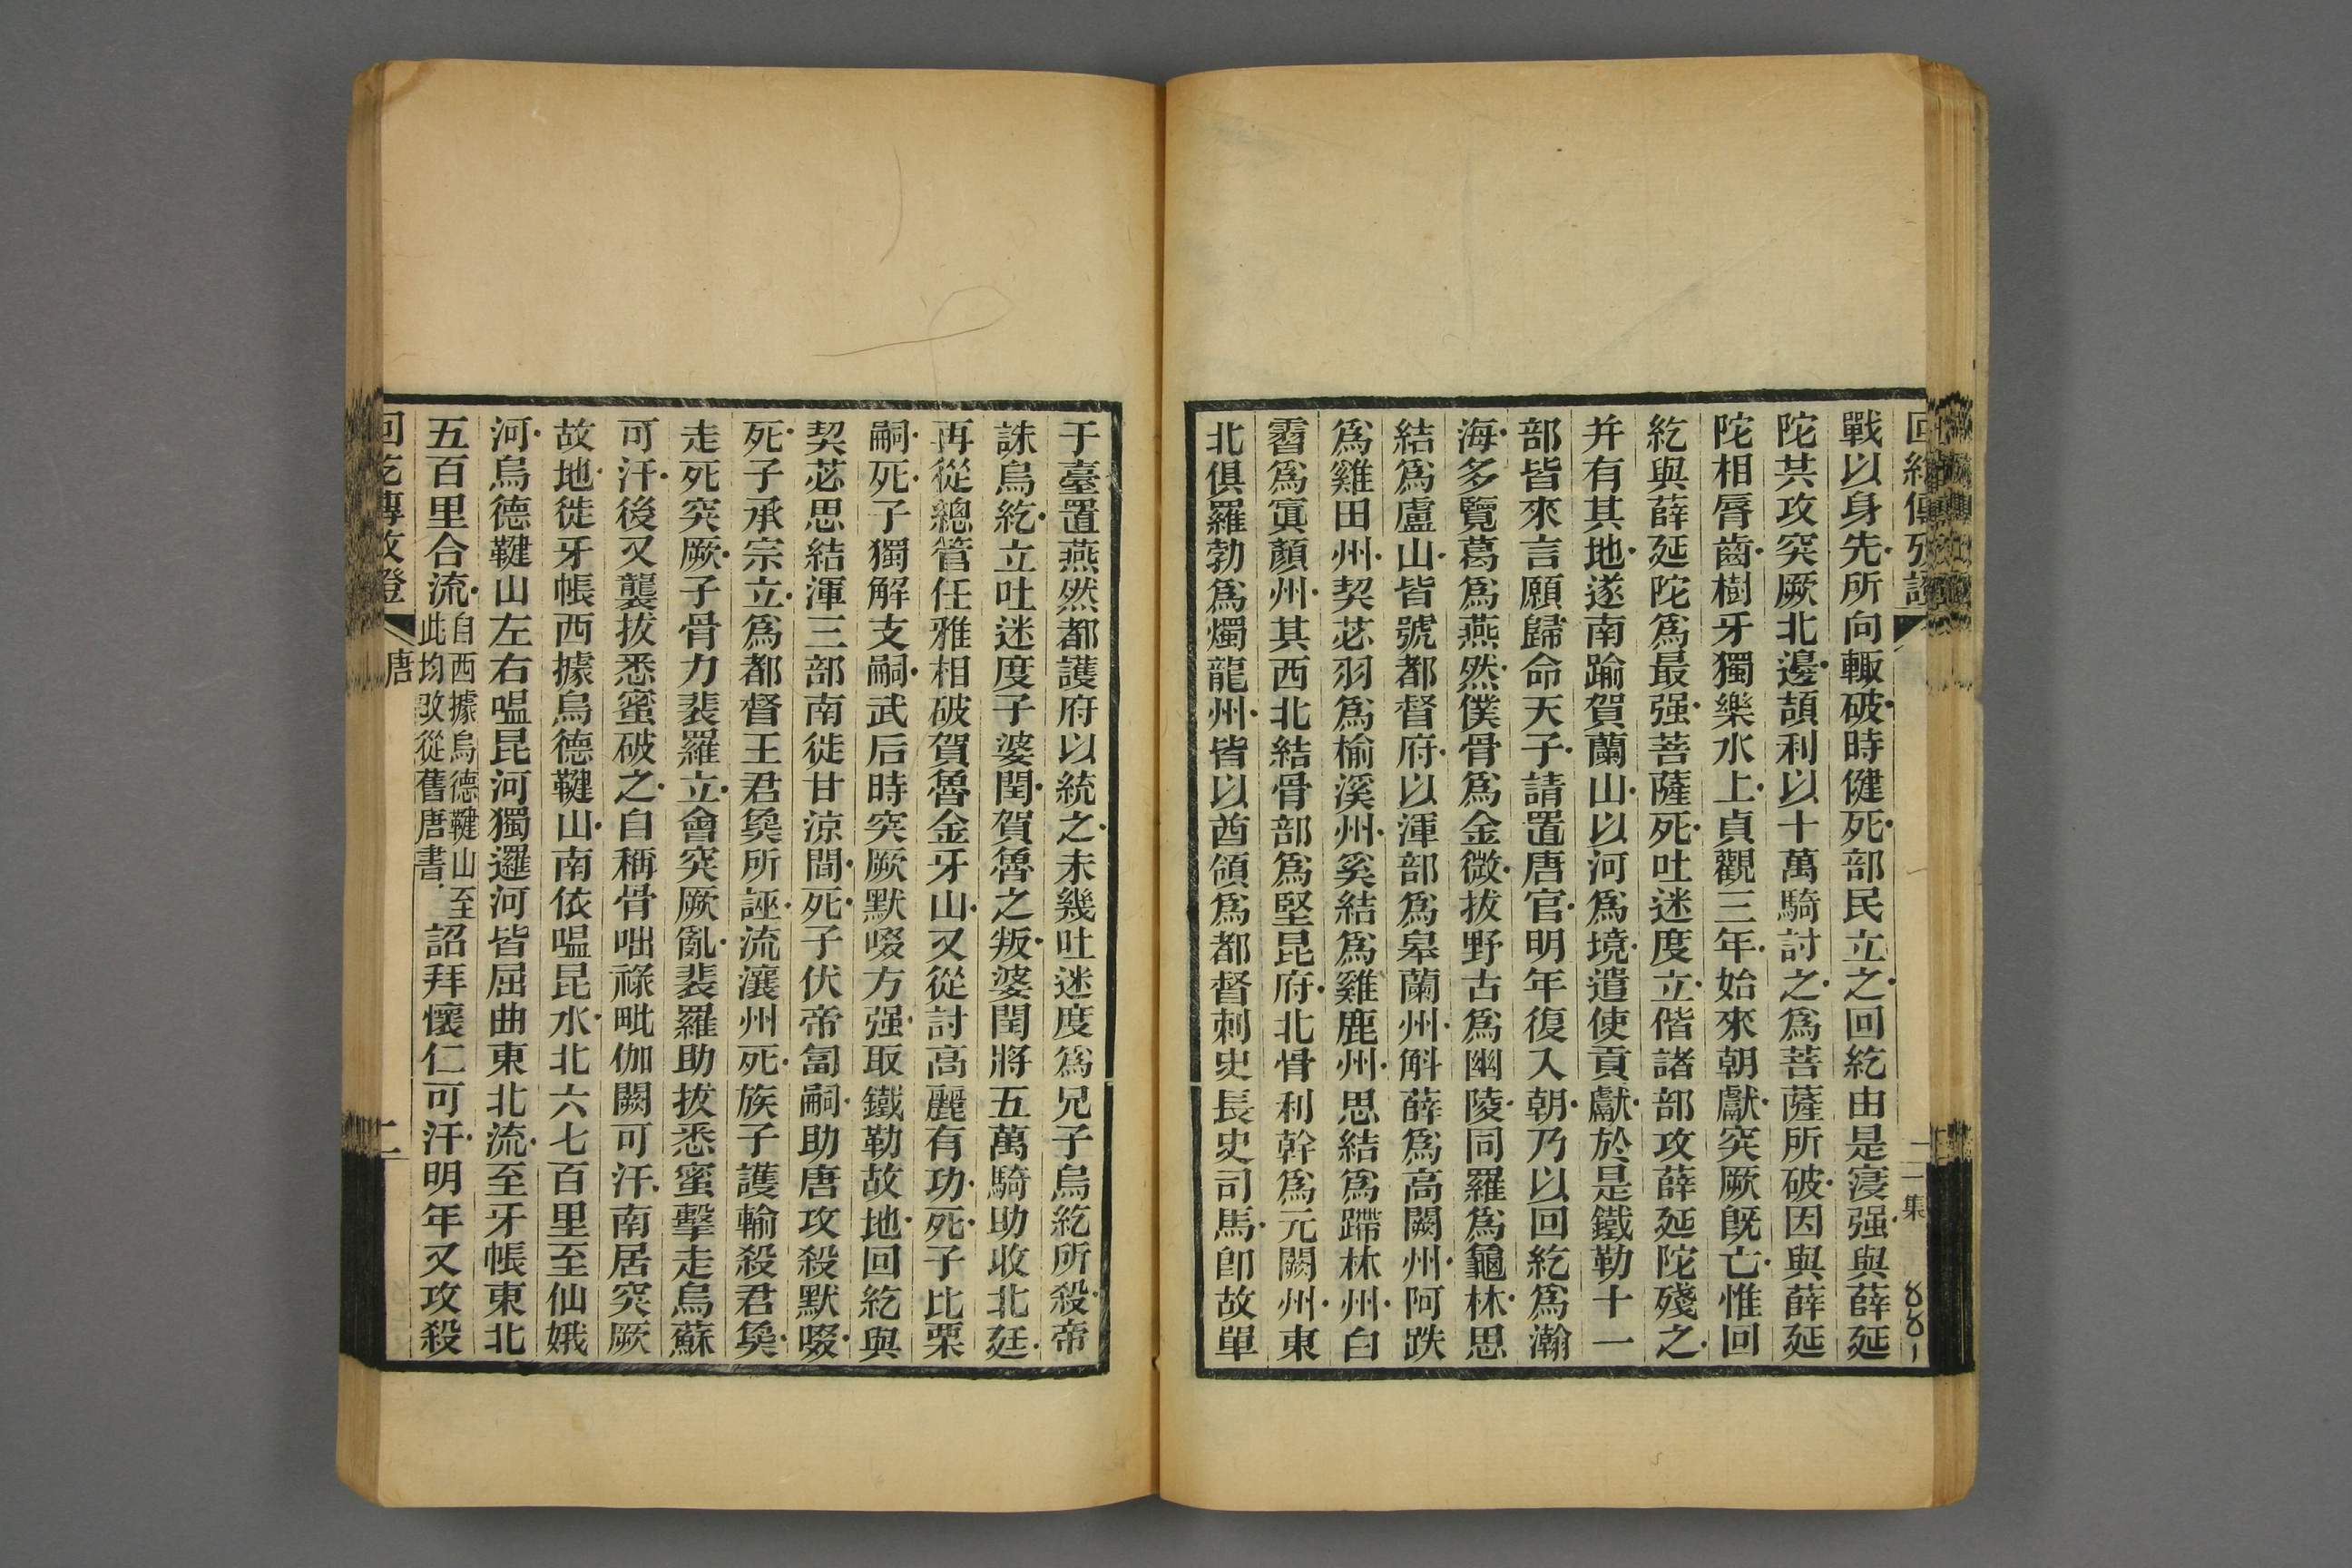 戰以身先所向輙破時健死部民立之回紇由是寖强與薛延
陀共攻突厥北邊頡利以十萬騎討之爲菩薩所破因與薛延
陀相脣齒樹牙獨樂水上貞觀三年始來朝獻突厥旣亡惟回
紇與薛延陀爲最强菩薩死吐迷度立偕諸部攻薛延陀殘之
并有其地遂南踰賀蘭山以河爲境遣使貢獻於是鐵勒十一
部皆來言願歸命天子請置唐官明年復入朝乃以回紇爲瀚
海多覽葛爲燕然僕骨爲金微拔野古爲幽陵同羅爲龜林思
結爲盧山皆號都督府以渾部爲皋蘭州斛薛爲高闕州阿跌
爲雞田州契苾羽爲榆溪州奚結爲雞鹿州思結爲蹛林州白
霫爲寘顏州其西北結骨部爲堅昆府北骨利幹爲元闕州東
北俱羅勃爲燭龍州皆以酋領爲都督刺史長史司馬卽故單
集
881
于臺置燕然都護府以統之未幾吐迷度爲兄子烏紇所殺帝
誅烏紇立吐迷度子婆閏賀魯之叛婆閏將五萬騎助收北廷
再從總管任雅相破賀魯金牙山又從討高麗有功死子比栗
嗣死子獨解支嗣武后時突厥默啜方强取鐵勒故地回紇與
契苾思結渾三部南徙甘涼間死子伏帝匐嗣助唐攻殺默啜
死子承宗立爲都督王君㚟所誣流瀼州死族子護輸殺君㚟
走死突厥子骨力裴羅立會突厥亂裴羅助拔悉蜜擊走烏蘇
可汗後又襲拔悉蜜破之自稱骨咄祿毗伽闕可汗南居突厥
故地徙牙帳西據烏德鞬山南依嗢昆水北六七百里至仙娥
河烏德鞬山左右嗢昆河獨邏河皆屈曲東北流至牙帳東北
五百里合流自西據烏德鞬山至此均攷從舊唐書詔拜懷仁可汗明年又攻殺
唐
二